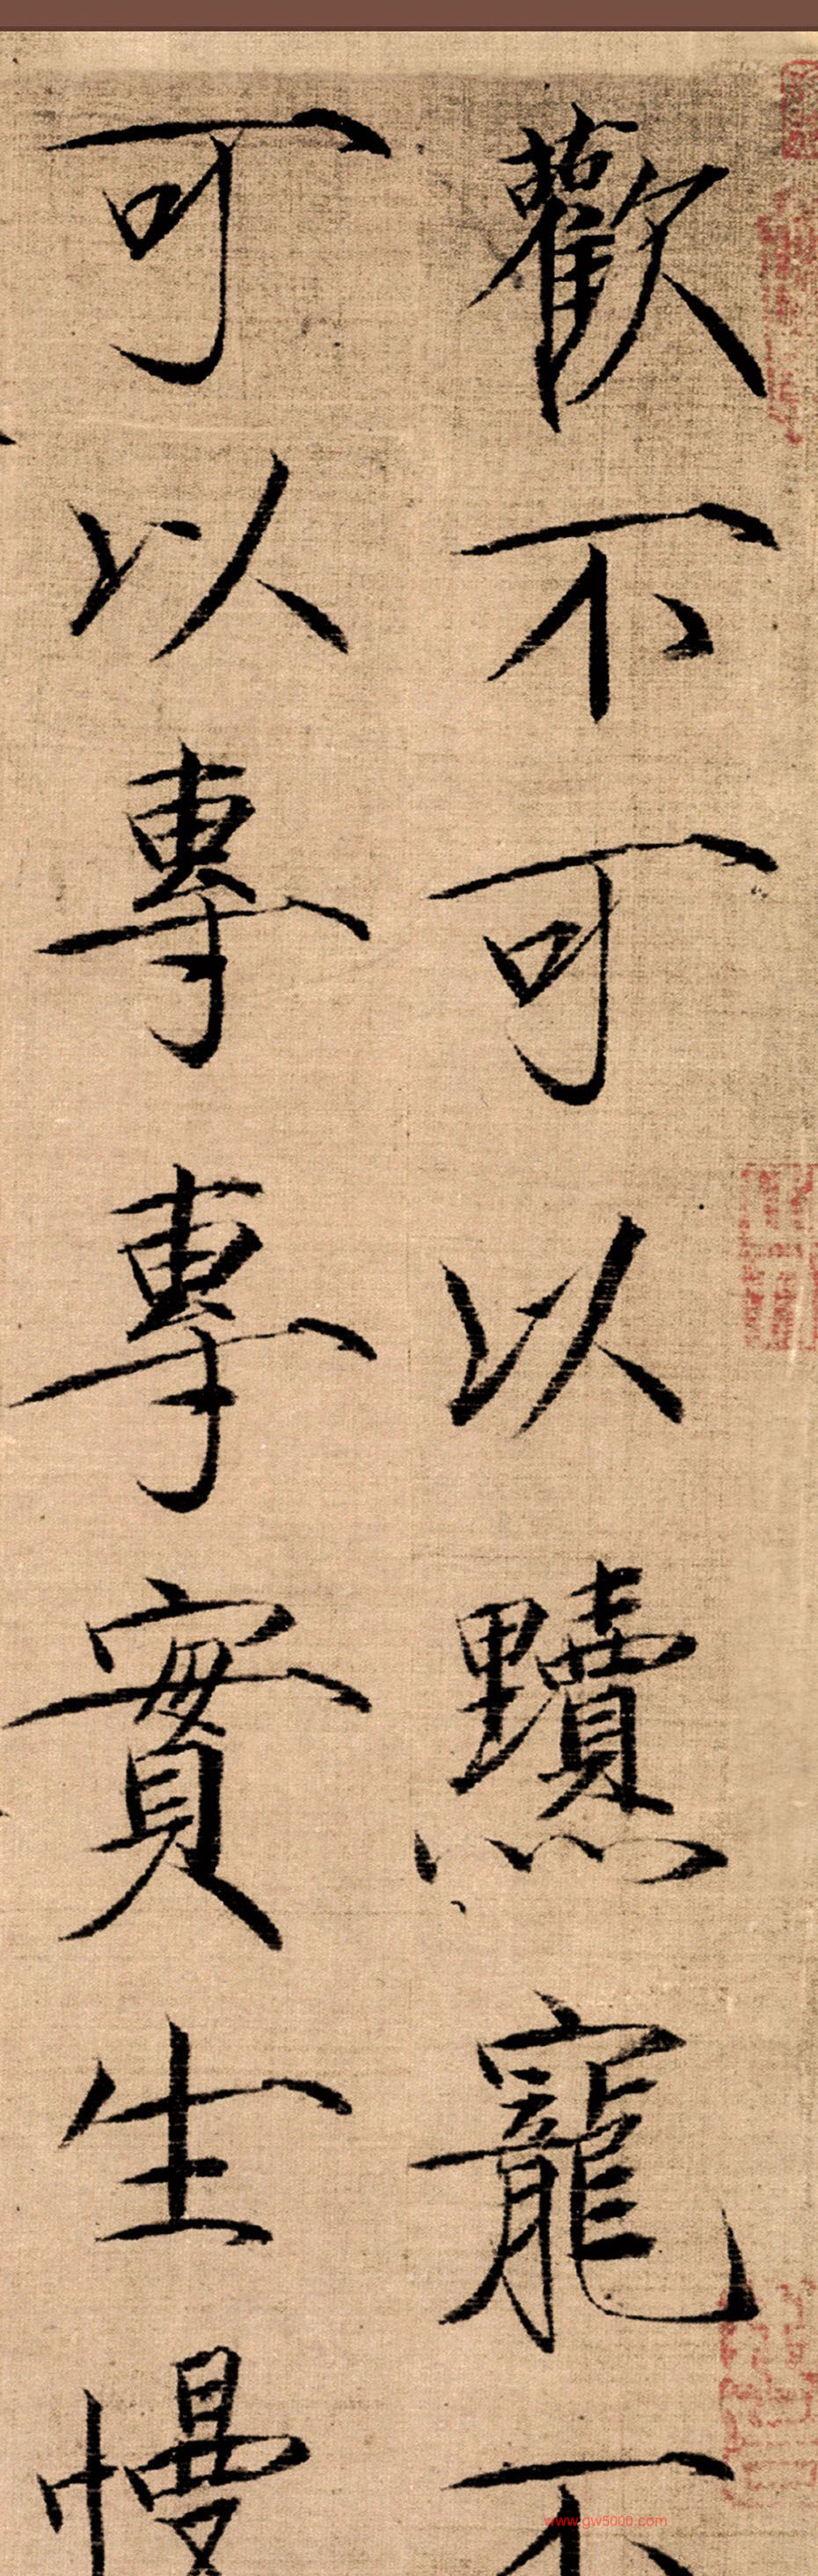 歡不可以黷寵不
可以專專實生慢
www.gw5000.com